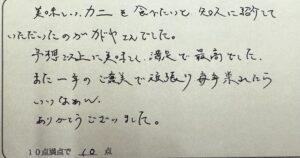 美味しい、カニを食べたいと、知人に紹介して
いただいたのがカドヤさんでした。
予想以上に美味しく、満足で最高でした。
また一年のご褒美で頑張り毎年来れたら
いいなぁ〜。
ありがとうございました。
10点満点で 10 点